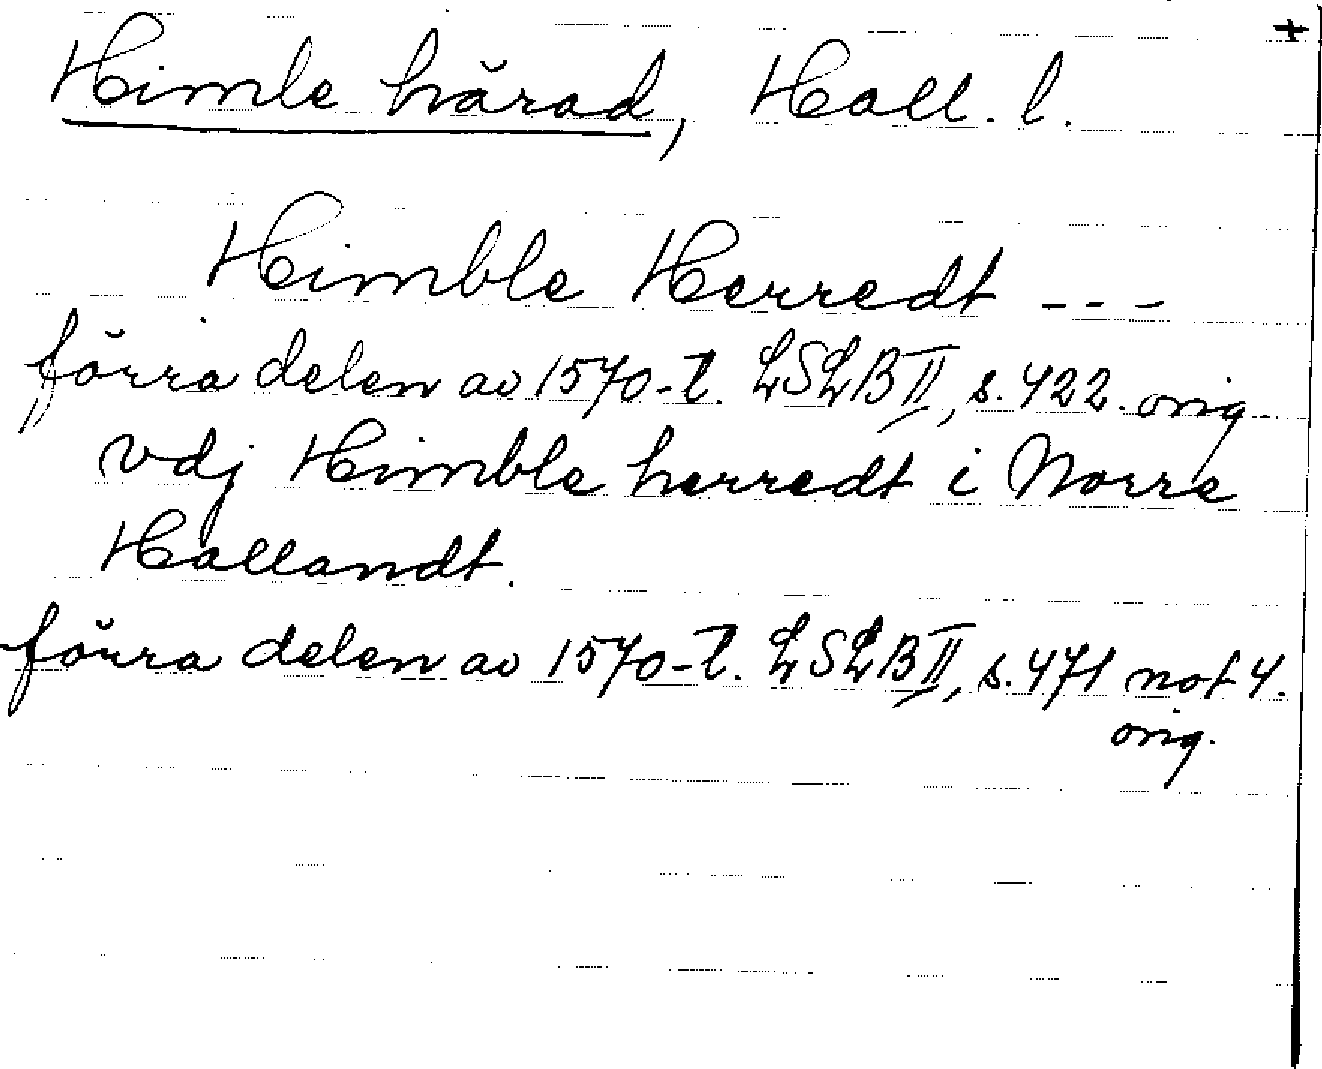 +
Himle härad, Hall. l.
Himble Herredt ---
förra delen av 1570-t. LSLB II, s. 422. orig
vdj Himble herredt i Norre
Hallandt.
förra delen av 1570-t. LSLB II, s. 471 not 4.
orig.